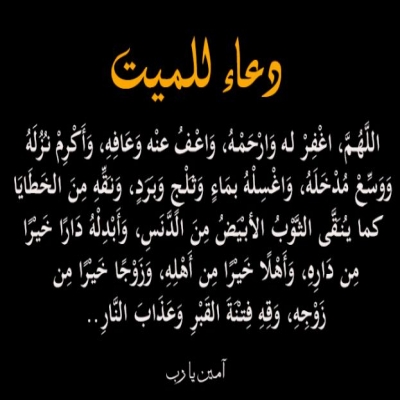 دعاء للميت
اللَّهُمَّ، اغْفِرْ له وَارْحَمْهُ، وَاعْفُ عنْه وَعَافِهِ، وَأَكْرِمْ نُزُلَهُ
وَوَسِّعْ مُدْخَلَهُ، وَاغْسِلْهُ بمَاءٍ وَثَلْجٍ وَبَرَدٍ، وَنَقِّهِ مِنَ الخَطَايَا
كما يُنَقَّى الثَّوْبُ الأبْيَضُ مِنَ الدَّنَسِ، وَأَبْدِلْهُ دَارًا خَيْرًا
مِن دَارِهِ، وَأَهْلًا خَيْرًا مِن أَهْلِهِ، وَزَوْجًا خَيْرًا مِن
زَوْجِهِ، وَقِهِ فِتْنَةَ القَبْرِ وَعَذَابَ النَّارِ..
آمين يا رب